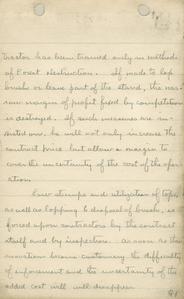 tractor has been trained only in methods
of Forest destruction. If made to lop
brush or leave part of the stand, the nar-
row margin of profit fixed by competition
is destroyed. If such measures are in-
sisted on, he will not only increase the
contract price but allow a margin to
cover the uncertainty of the cost of the oper-
ation.
Low stumps and utilization of tops,
as well as lopping & disposal of brush, is
forced upon contractors by the contract
itself and by inspectors. As soon as the
innovations become customary the difficulty
of enforcement and the uncertainty of the
added cost will disappear.